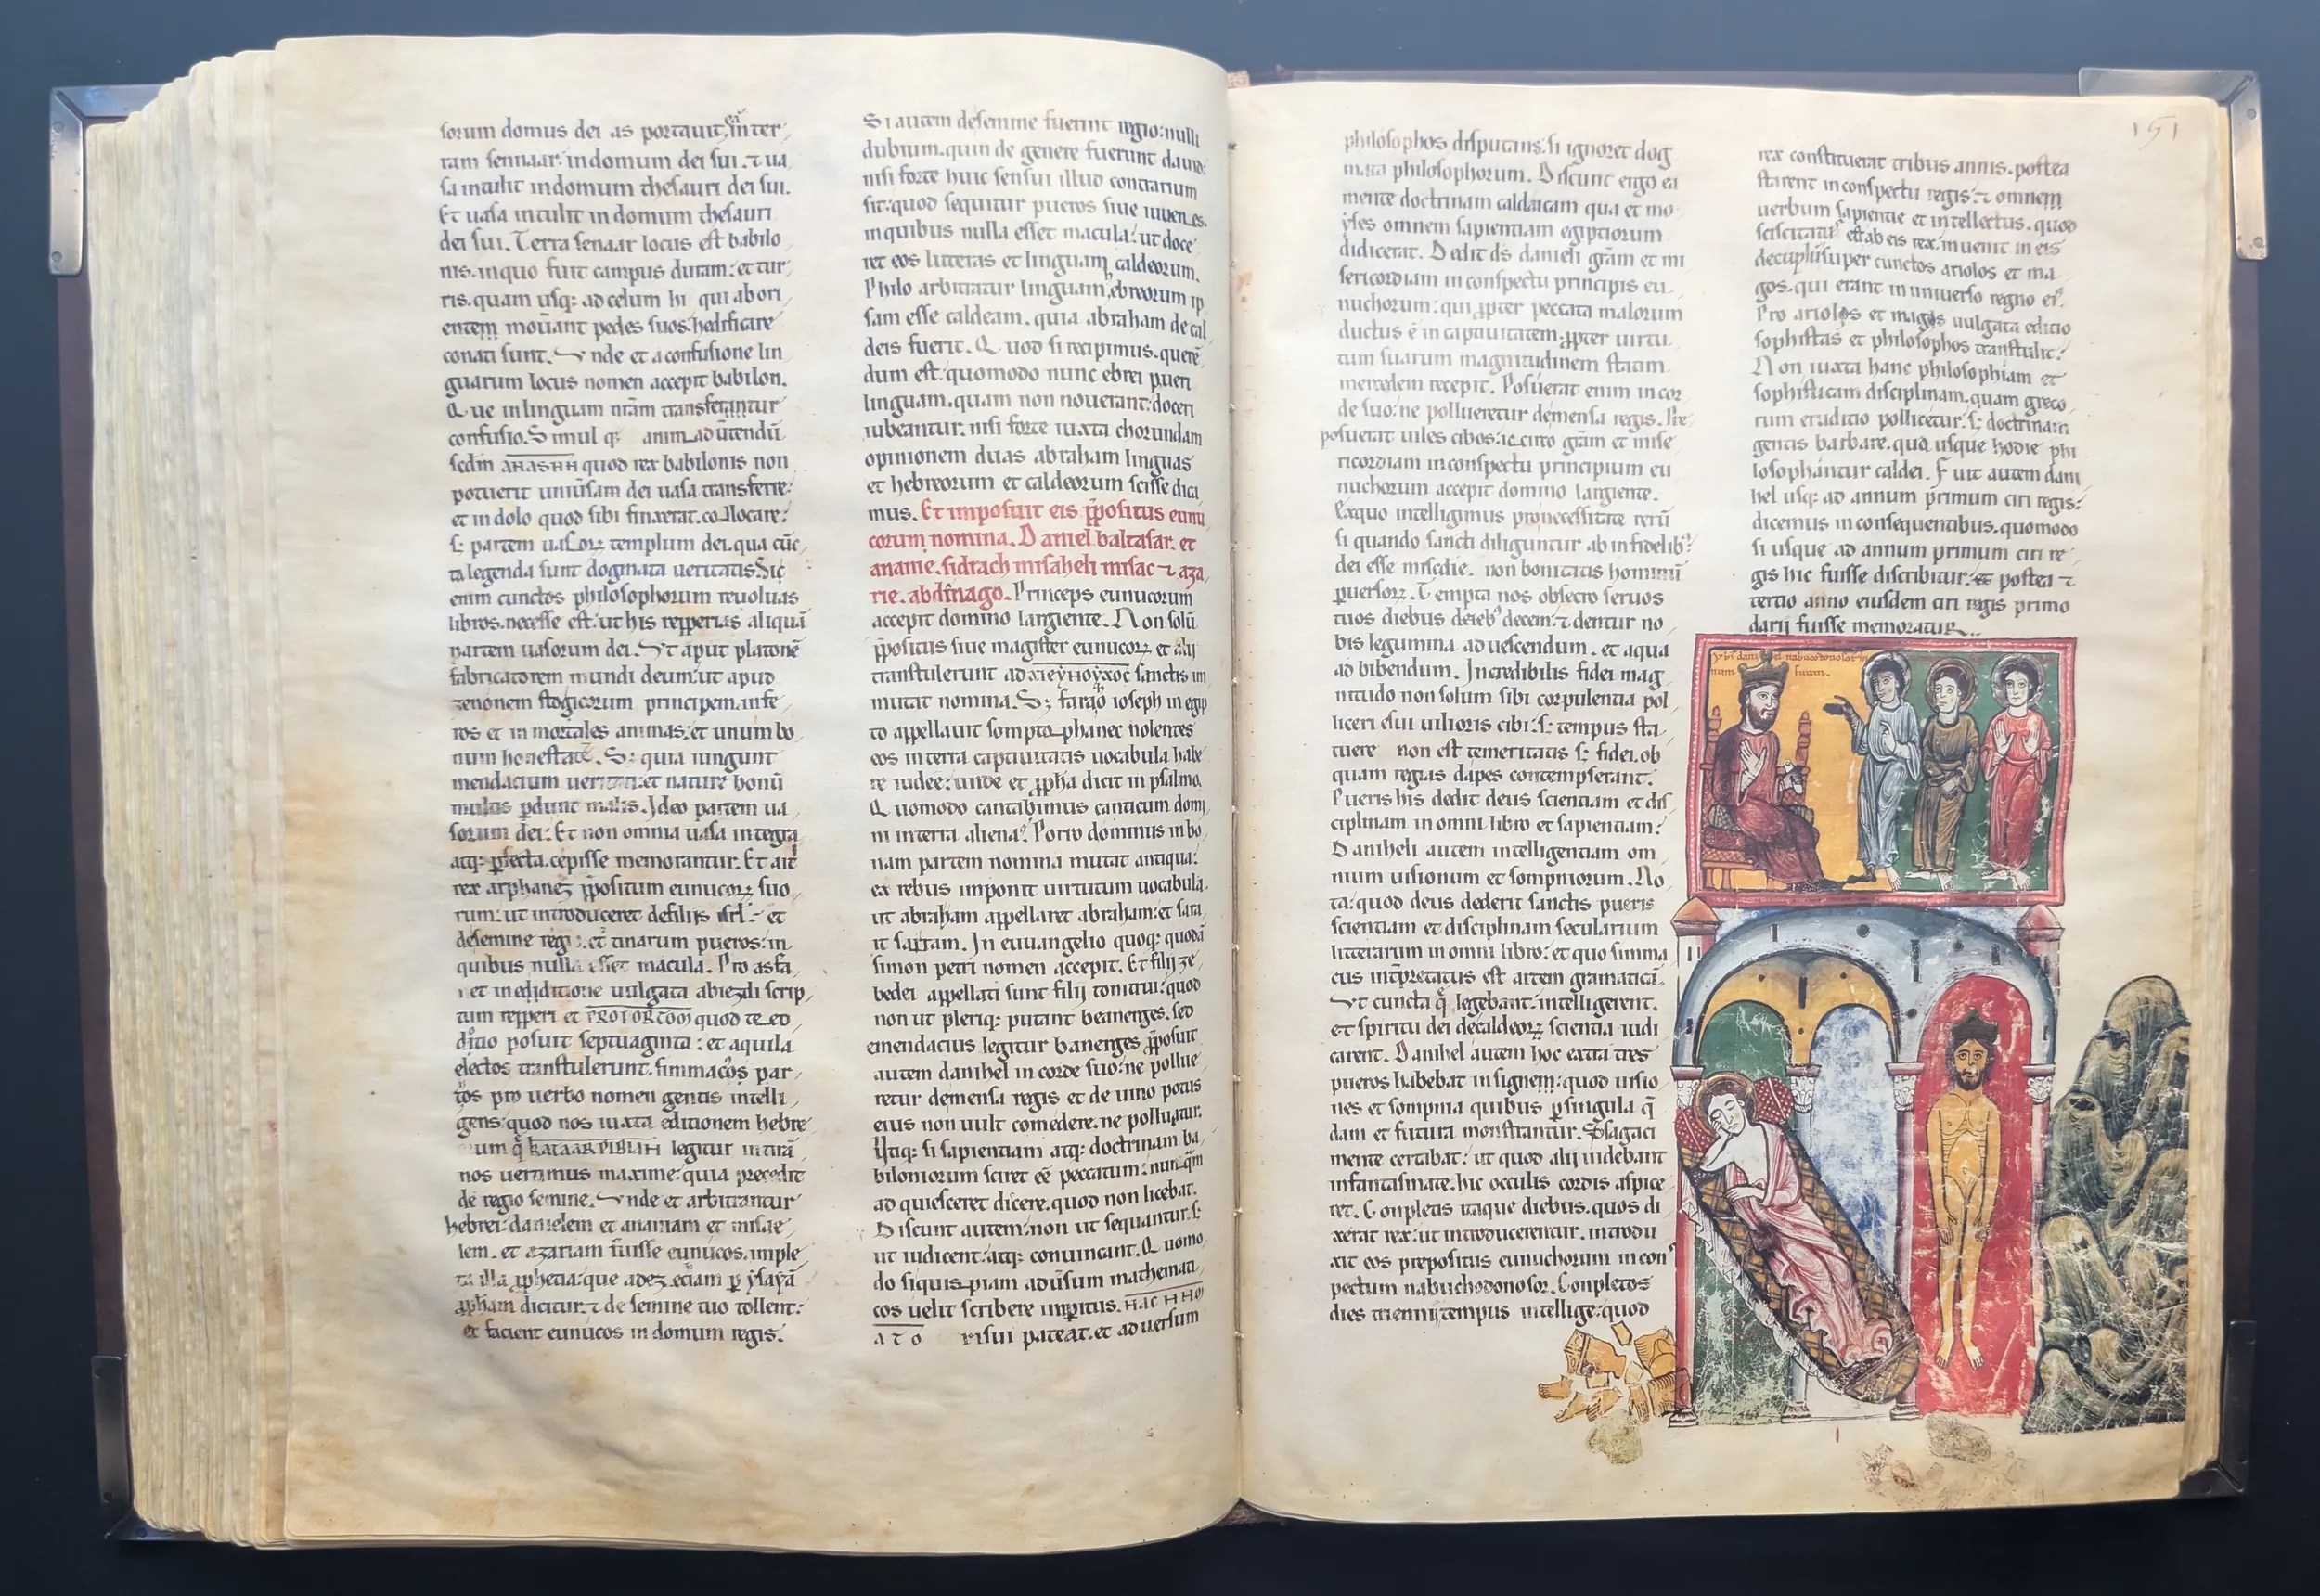 sorum domus dei as portauit, ea in ter
ram sennaar: in domum dei sui. ⁊ ua
sa intulit in domum thesauri dei sui.
Et uasa intulit in domum thesauri
dei sui. Terra senaar locus est babilo
nis. in quo fuit campus duram: et tur
ris. quam usq: ad celum hi qui ab ori
entem mouant pedes suos: hedificare
conati sunt. Vnde et a confusione lin
guarum locus nomen accepit babilon.
Que in linguam nr̄am transferantur
confusio. Simul q: anim adu̅tendu̅
sedm̅ quod rex babilonis non
potuerit uniu̅sam dei uasa transferre:
et in dolo quod sibi finxerat. collocare:
s; partem uasoꝝ templum dei. qua cu̅c
ta legenda sunt dogmata ueritatis. Sic
enim cunctos philosophorum reuoluas
libros. necesse est: ut his repperias aliqua̅
partem uasorum dei. Vt aput platone̅
fabricatorem mundi deum: ut apud
zenonem stogicorum principem. infe
ros et in mortales animas: et unum bo
num honestate̅. S; quia iungunt
mendacium ueritati: et nature bonu̅
multis ꝑdunt malis. Ideo partem ua
sorum dei: Et non omnia uasa integra
atq: ꝑfecta. cepisse memorantur. Et ait
rex arphanez p̅positum eunucoꝝ suo
rum: ut introduceret de filijs isrl̅: et
de semine regi et tinarum pueros: in
quibus nulla esset macula. Pro asfa
net in editione uulgata abiezdi scrip
tum repperi et quod te eo
ditio posuit septuaginta: et aquila
electos transtulerunt. simmacos par
tos pro uerbo nomen gentis intelli
gens: quod nos iuxta editionem hebre
um q̅ legitur in tira̅
nos uertimus maxime: quia precedit
de regio semine. Vnde et arbitrantur
hebrei: danielem et ananiam et misae
lem. et azariam fuisse eunucos. imple
ta illa ꝓphetia: que ad ez. eciam ꝑ ysaya̅
ꝓpham dicitur. ⁊ de semine tuo tollent:
et facient eunucos in domum regis.
Si autem de semine fuerint regio: nulli
dubium. quin de genere fuerunt dauid:
nisi forte huic sensui illud contrarium
sit: quod sequitur pueros siue iuuenes.
in quibus nulla esset macula: ut doce
ret eos litteras et linguam caldeorum.
Philo arbitratur linguam ebreorum ip
sam esse caldeam. quia abraham de cal
deis fuerit. Quod si recipimus. quere̅
dum est: quomodo nunc ebrei pueri
linguam. quam non nouerant: doceri
iubeantur: nisi forte iuxta chorundam
opinionem duas abraham linguas
et hebreorum et caldeorum scisse dica
mus. Et imposuit eis p̅positus eunu
corum nomina. Daniel baltasar. et
ananie. sidrach misaheli misac ⁊ aza
rie. abdinago. Princeps eunucorum
accepit domino largiente. Non solu̅
p̅positus siue magister eunucoꝝ et alij
transtulerunt ad sanctis im
mutat nomina. S; farao ioseph in egip
to appellauit sompto phanec nolentes
eos in terra captiuitatis uocabula habe
re iudee: unde et ꝓpha dicit in psalmo.
Quomodo cantabimus canticum domi
ni in terra aliena? Porro dominus in bo
nam partem nomina mutat antiqua:
ex rebus imponit uirtutum uocabula.
ut abraham appellaret abraham: et sara
it sarram. In euuangelio quoq: quoda̅
simon petri nomen accepit. Et filij ze
bedei appellati sunt filij tonitrui: quod
non ut pleriq: putant beanenges. sed
emendacius legitur banenges p̅posuit
autem danihel in corde suo: ne pollue
retur de mensa regis et de uino potus
eius non uult comedere. ne polluatur.
Vtiq: si sapientiam atq: doctrinam ba
biloniorum sciret e̅e peccatum: nunq̅m
ad quiesceret dicere. quod non licebat.
Discunt autem: non ut sequantur. s;
ut iudicent: atq: conuincant. Quomo
do siquis piam adu̅sum mathemati
cos uelit scribere imꝑitus.
ato risui pateat. et aduersum
151
philosophos disputans: si ignoret dog
mata philosophorum. Discunt ergo ea
mente doctrinam caldaicam qua et mo
yses omnem sapientiam egiptiorum
didicerat. Dedit ds̅ danieli gr̅am et mi
sericordiam in conspectu principis eu
nuchorum: qui ꝓpter peccata malorum
ductus e̅ in captiuitatem: ꝓpter uirtu
tum suarum magnitudinem statim
mercedem recepit. Posuerat enim in cor
de suo: ne pollueretur de mensa regis. Pre
posuerat uiles cibos: iccirco gr̅am et mise
ricordiam in conspectu principium eu
nuchorum accepit domino largiente.
Ex quo intelligimus pro necessitate reru̅
si quando sancti diliguntur ab infidelib:
dei esse miscdie. non bonitatis hominu̅
ꝑuersoꝝ. Tempta nos obsecro seruos
tuos diebus decem: ⁊ dentur no
bis legumina ad uescendum. et aqua
ad bibendum. Incredibilis fidei mag
nitudo non solum sibi corpulentia pol
liceri esui uilioris cibi: s; tempus sta
tuere non est temeritatis s; fidei. ob
quam regias dapes contempserant.
Pueris his dedit deus scientiam et dis
ciplinam in omni libro et sapientiam:
Daniheli autem intelligentiam om
nium uisionum et sompniorum. No
ta: quod deus dederit sanctis pueris
scientiam et disciplinam secularium
litterarum in omni libro: et quo simma
cus int̅pretatus est artem gramatica̅.
Vt cuncta q̅ legebant: intelligerent.
et spiritu dei de caldeoꝝ scientia iudi
carent. Danihel autem hoc extra tres
pueros habebat insignem: quod uisio
nes et sompnia quibus ꝑ singula q̅
dam et futura monstrantur. Sagaci
mente certabat: ut quod alij uidebant
in fantasmate. hic occulis cordis aspice
ret. Conpletis itaque diebus. quos di
xerat rex: ut introducerentur. introdu
xit eos prepositus eunuchorum in con
pectum nabuchodonosor. Conpletos
dies triennij tempus intellige: quod
rex constituerat tribus annis. postea
starent in conspectu regis: ⁊ omnem
uerbum sapientie et intellectus. quod
sciscitatus est ab eis rex: inuenit in eis
decuplu̅ super cunctos ariolos et ma
gos. qui erant in uniuerso regno ei9.
Pro ariolos et magos uulgata editio
sophistas et philosophos transtulit:
Non iuxta hanc philosophiam et
sophisticam disciplinam. quam greco
rum eruditio pollicetur. s; doctrinam
gentis barbare. qua usque hodie phi
losophantur caldei. Fuit autem dani
hel usq: ad annum primum ciri regis:
dicemus in consequentibus. quomodo
si usque ad annum primum ciri re
gis hic fuisse discribitur: et postea ⁊
tertio anno eiusdem ciri regis primo
darij fuisse memoratur.
ybi daniel nabucodonosor